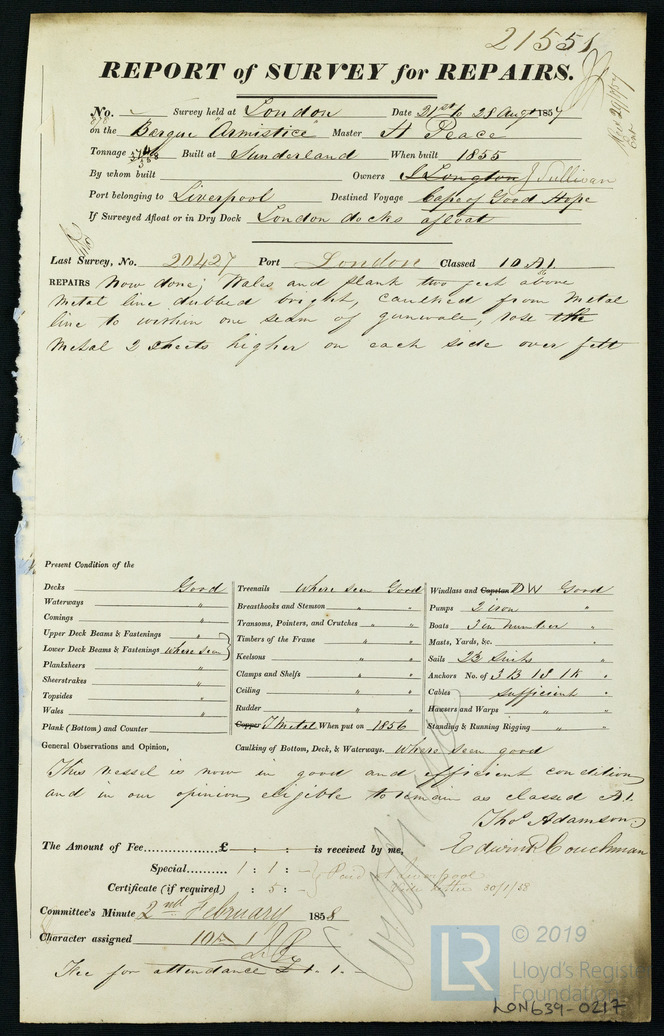 21551
REPORT of SURVEY for REPAIRS.
No. Survey held at London Date 21st to 28 Augt 1857
on the Barque "Armistice" Master A Peace
Tonnage Built at Sunderland When built 1855
By whom built Owners I Longton J Sullivan
Port belonging to Liverpool Destined Voyage Cape of Good Hope
If Surveyed Afloat or in Dry Dock London docks afloat
Last Survey, No. 20427 Port London Classed 10 A1
REPAIRS Now done; Wales and plank two feet above
metal line dubbed bright, caulked from metal
line to within one seam of gunwale, rose the
metal 2 sheets higher on each side over felt
Present Condition of the
Decks Good
Waterways "
Comings "
Upper Deck Beams & Fastenings "
Lower Deck Beams & Fastenings where seen
Planksheers "
Sheerstrakes "
Topsides "
Wales "
Plank (Bottom) and Counter
Treenails where seen Good
Breasthooks and Stemson " "
Transoms, Pointers, and Crutches " "
Timbers of the Frame " "
Keelsons " "
Clamps and Shelfs " "
Ceiling " "
Rudder " "
Copper Y Metal When put on 1856
Windlass and Capstan DW Good
Pumps 2 iron "
Boats 3 in number "
Masts, Yards, &c. "
Sails "
Anchors No. of 3 B 1 S 1 K "
Cables sufficient "
Hawsers and Warps " "
Standing & Running Rigging " "
General Observations and Opinion, Caulking of Bottom, Deck, & Waterways. Where seen good
This vessel is now in good and efficient condition
and in our opinion eligible to remain as classed A1.
Thos Adamson
Edwin R Couchman
The Amount of Fee £ - : - : - is received by me,
Special 1 : 1 : - Paid at Liverpool
Certificate (if required) : 5 : - Vide letter 30/1/58
Committee's Minute 2nd February 1858
Character assigned 10 A 1
Fee for attendance £1. 1. -
LR © 2019
Lloyd's Register
Foundation
LON639-0217